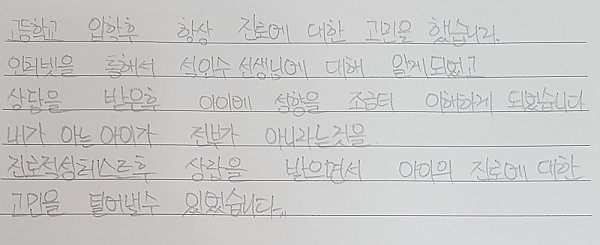 고등학교 입학후 항상 진로에 대한 고민을 했습니다.
인터넷을 통해서 석인수 선생님에 대해 알게되었고
상담을 받은후 아이에 성향을 조금더 이해하게 되었습니다
내가 아는 아이가 전부가 아니라는것을
진로적성테스트후 상담을 받으면서 아이의 진로에 대한
고민을 덜어낼수 있었습니다..